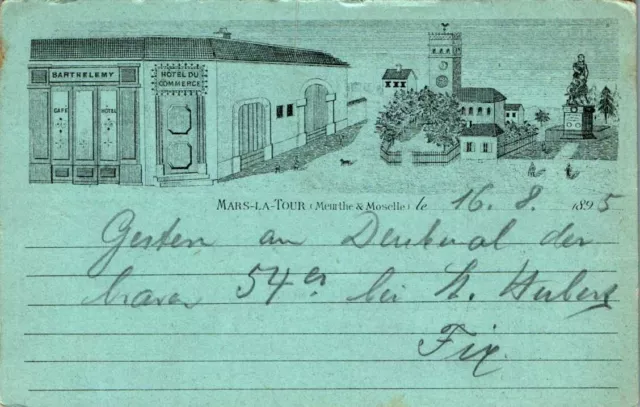 BARTHELEMY
CAFÉ
HOTEL
HÔTEL DU
COMMERCE
MARS-LA-TOUR (Meurthe & Moselle) le 16. 8. 1895
Gestern am Denkmal der
braven 54er bei St. Hubert
Fix.